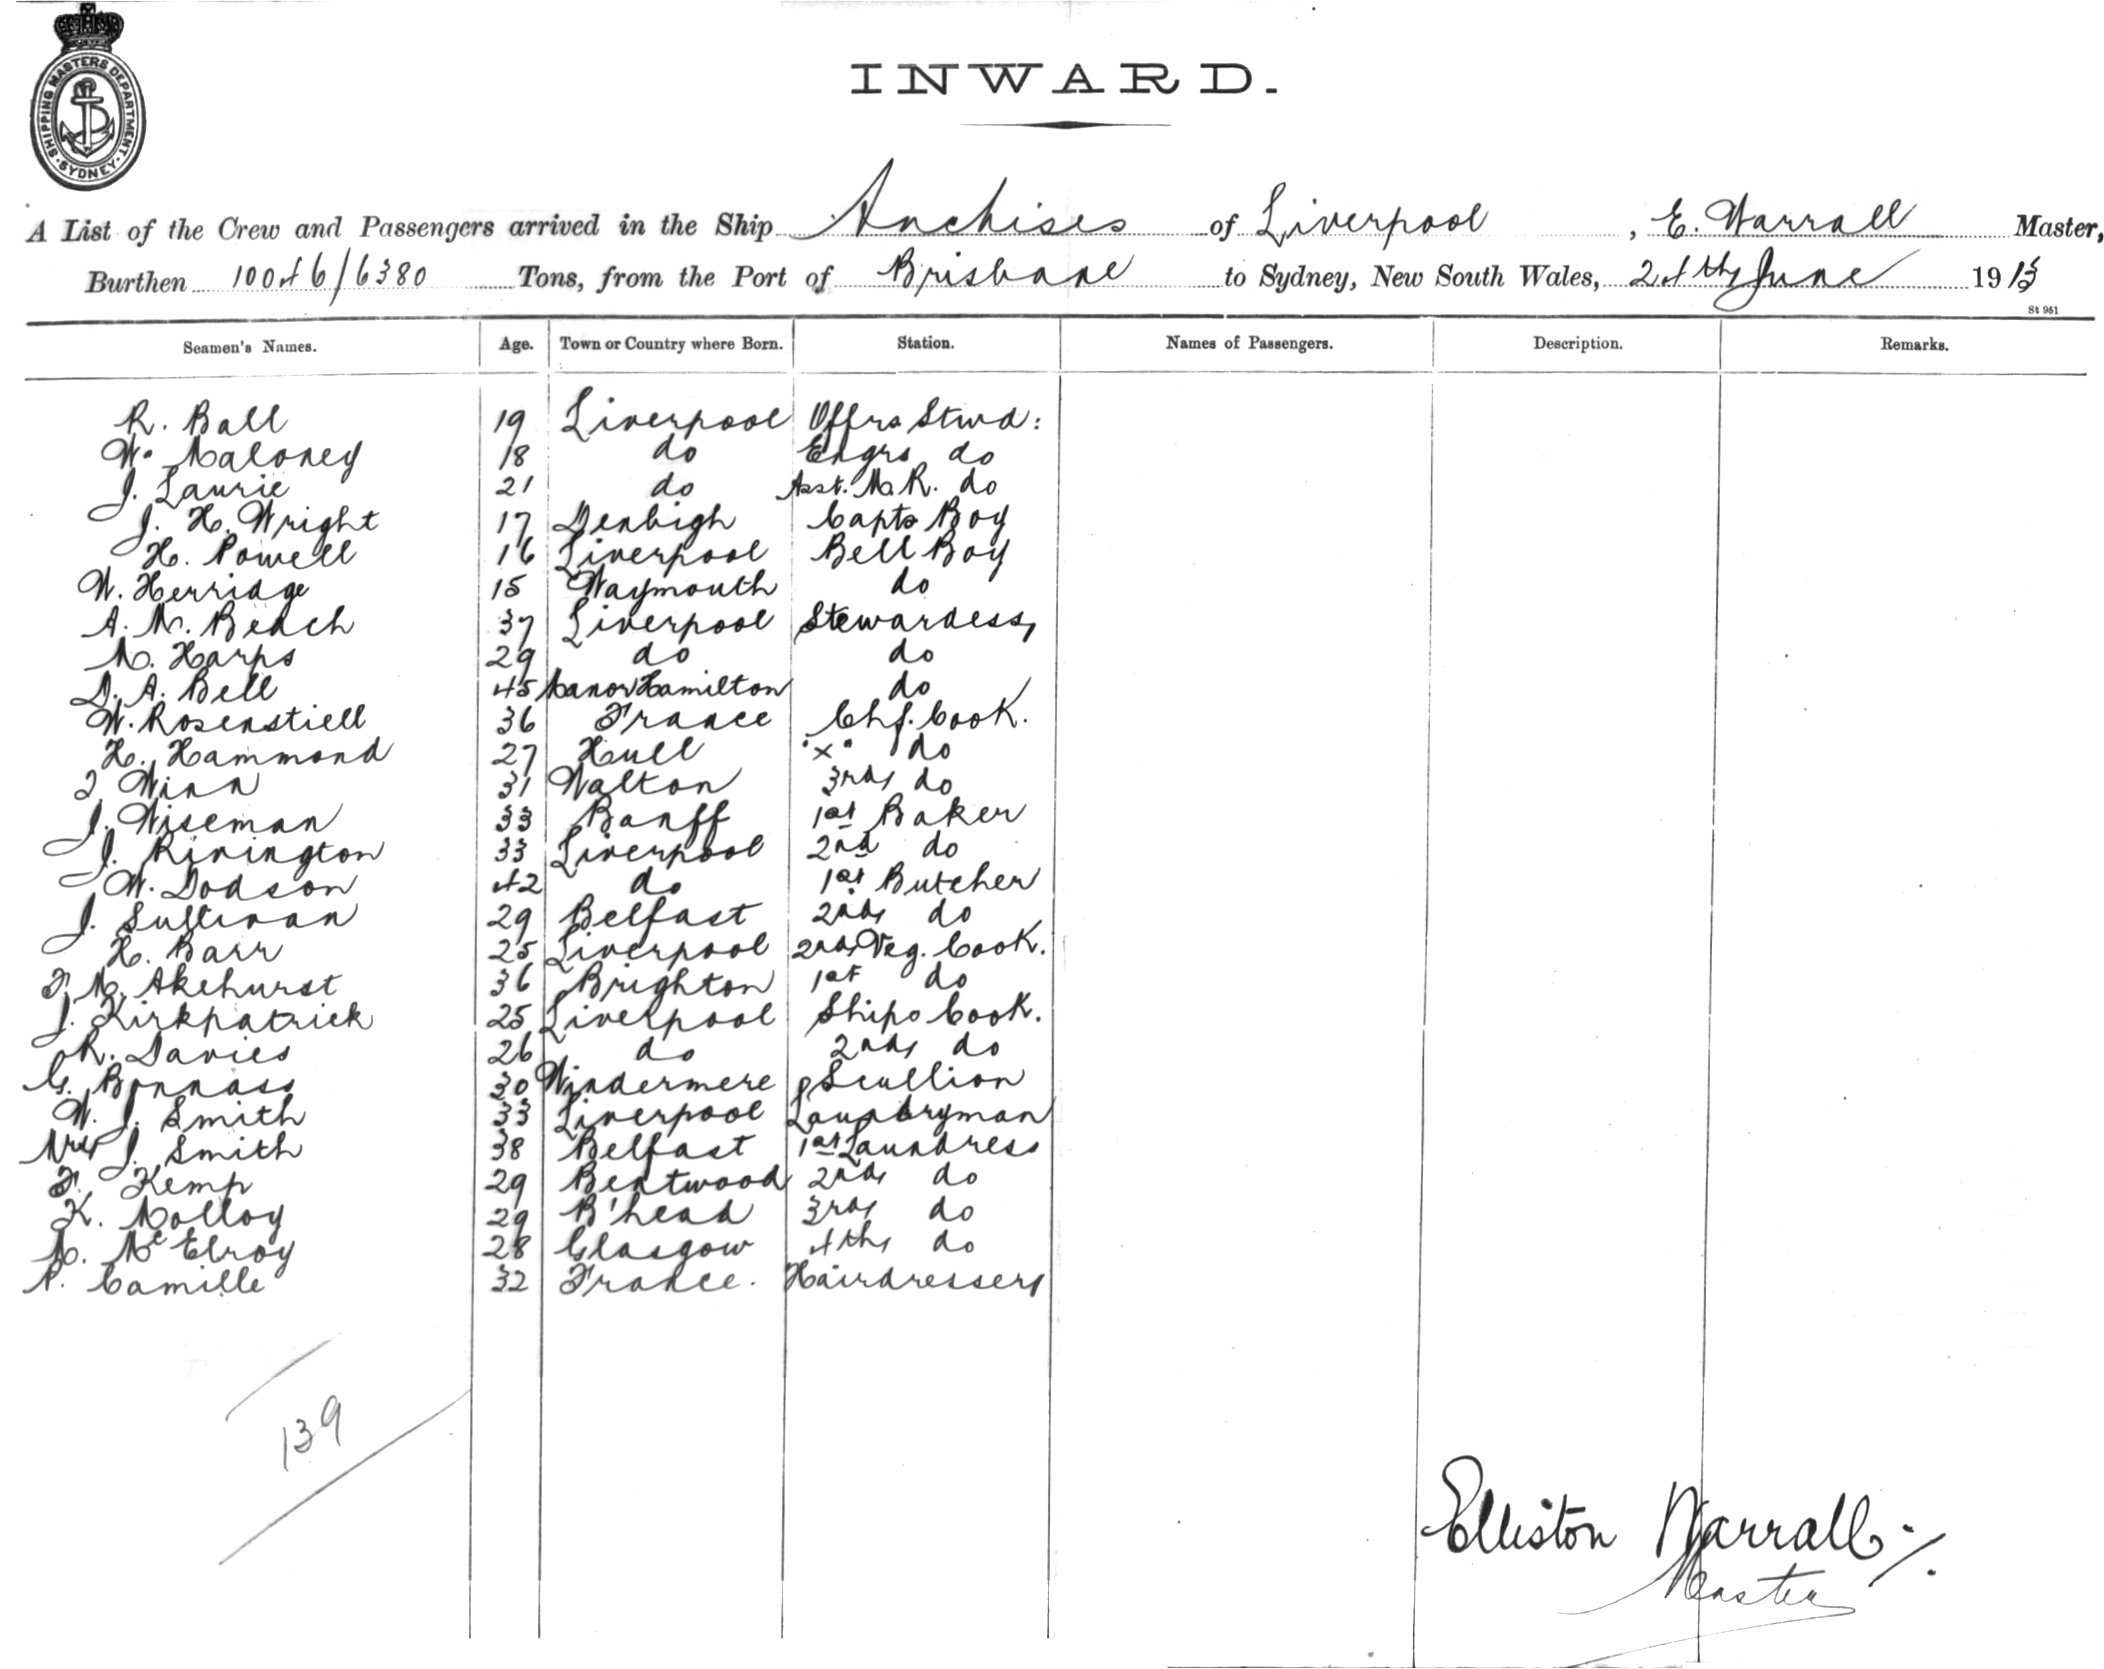 SHIPPING MASTERS DEPARTMENT · SYDNEY ·
INWARD.
A List of the Crew and Passengers arrived in the Ship Anchises of Liverpool, E. Warrall Master,
Burthen 10046/6380 Tons, from the Port of Brisbane to Sydney, New South Wales, 24th June 1913
St 951
Seamen's Names. Age. Town or Country where Born. Station. Names of Passengers. Description. Remarks.
R. Ball 19 Liverpool Offrs Stwd:
W. Maloney 18 do Engrs do
J. Laurie 21 do Asst. M.R. do
J. H. Wright 17 Denbigh Capts Boy
H. Powell 16 Liverpool Bell Boy
W. Herridge 15 Waymouth do
A. M. Beach 37 Liverpool Stewardess,
M. Harps 29 do do
D. A. Bell 45 Manor Hamilton do
W. Rosenstiell 36 France Chf. Cook.
H. Hammond 27 Hull "x" do
Winn 31 Walton 3rd do
J. Wiseman 33 Banff 1st Baker
J. Rivington 33 Liverpool 2nd do
W. Dodson 42 do 1st Butcher
J. Sullivan 29 Belfast 2nd do
H. Barr 25 Liverpool 2nd Veg. Cook.
F. M. Akehurst 36 Brighton 1st do
J. Kirkpatrick 25 Liverpool Ships Cook.
R. Davies 26 do 2nd do
G. Bonnass 30 Windermere Scullion
W. J. Smith 33 Liverpool Laundryman
Mrs J. Smith 38 Belfast 1st Laundress
F. Kemp 29 Bentwood 2nd do
K. Molloy 29 B'head 3rd do
M. McElroy 28 Glasgow 4th do
A. Camille 32 France. Hairdresser
139
Elliston Warrall
Master